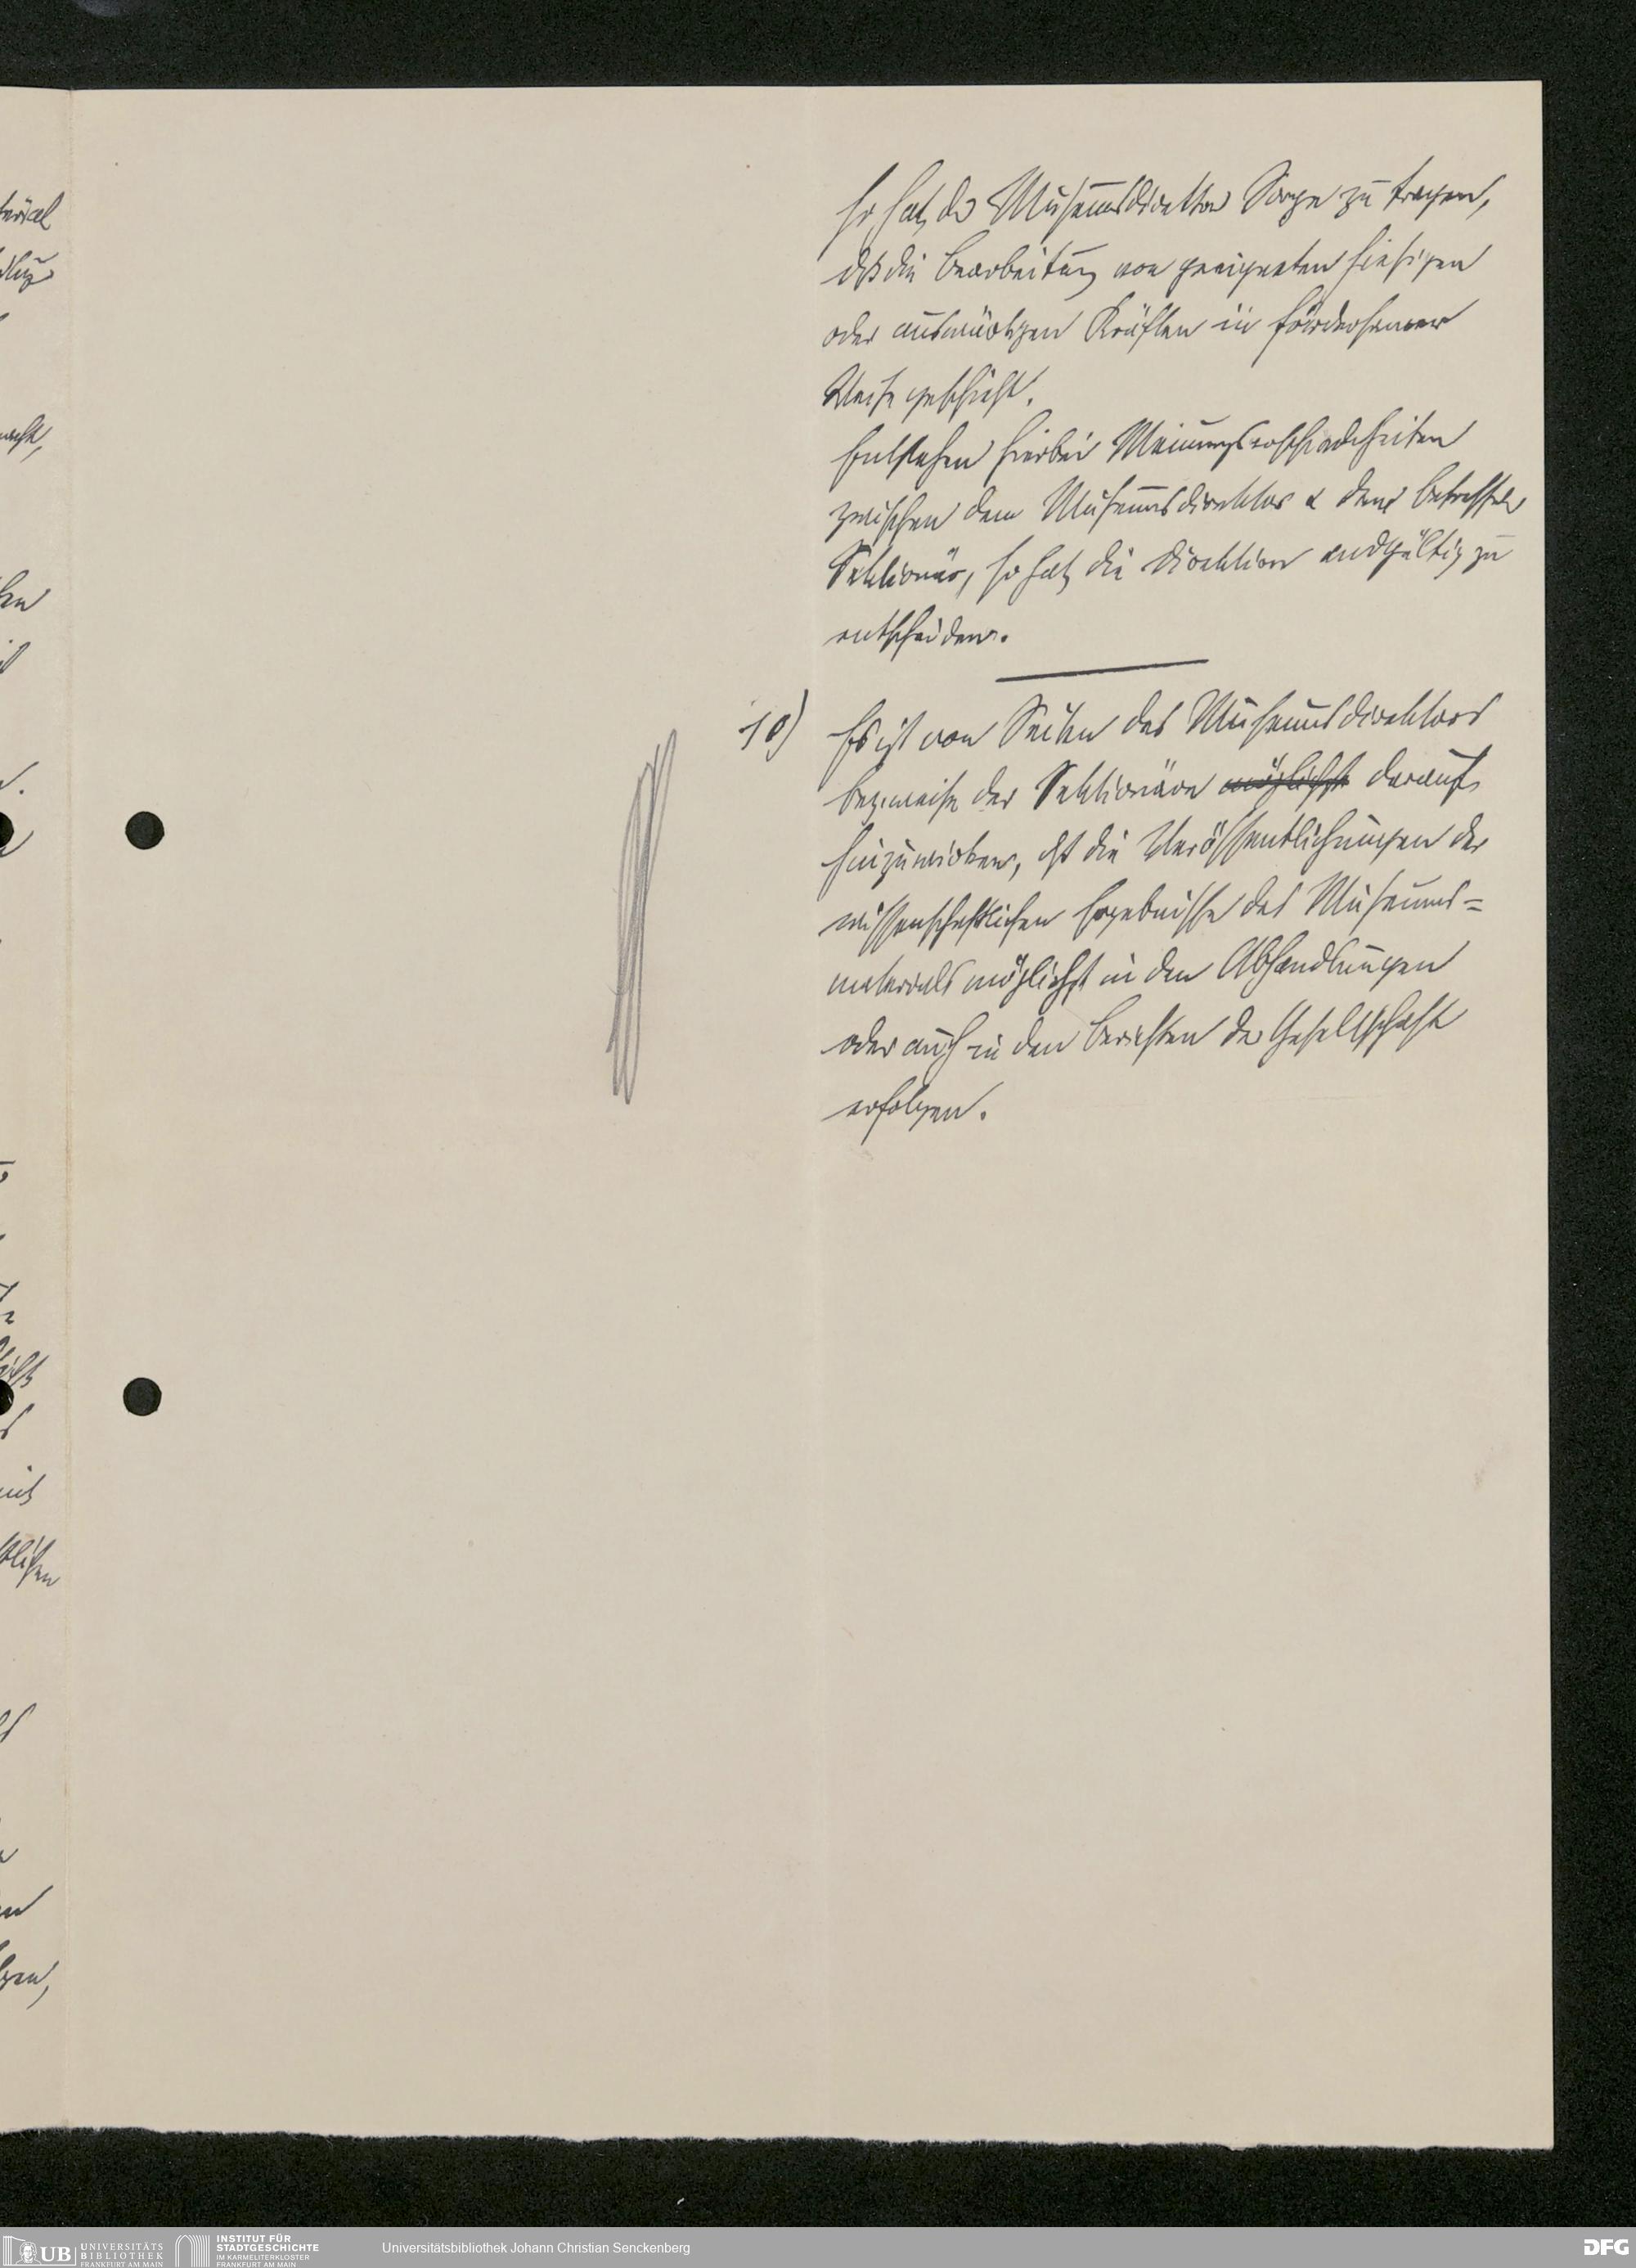 so hat der Museumsdirektor Sorge zu tragen,
daß die Bearbeitung von geeigneten hiesigen
oder auswärtigen Kräften in fördersamer
Weise geschieht.
Entstehen hierbei Meinungsverschiedenheiten
zwischen dem Museumsdirektor & dem betreffden
Sektionär, so hat die Direktion endgültig zu
entscheiden.
10) Es ist von Seiten des Museumsdirektors
bezw. der Sektionäre möglichst darauf
hinzuwirken, daß die Veröffentlichungen der
wissenschaftlichen Ergebnisse des Museums=
materials möglichst in den Abhandlungen
oder auch in den Berichten der Gesellschaft
erfolgen.
UB UNIVERSITÄTS
BIBLIOTHEK
FRANKFURT AM MAIN
INSTITUT FÜR
STADTGESCHICHTE
IM KARMELITERKLOSTER
FRANKFURT AM MAIN
Universitätsbibliothek Johann Christian Senckenberg
DFG